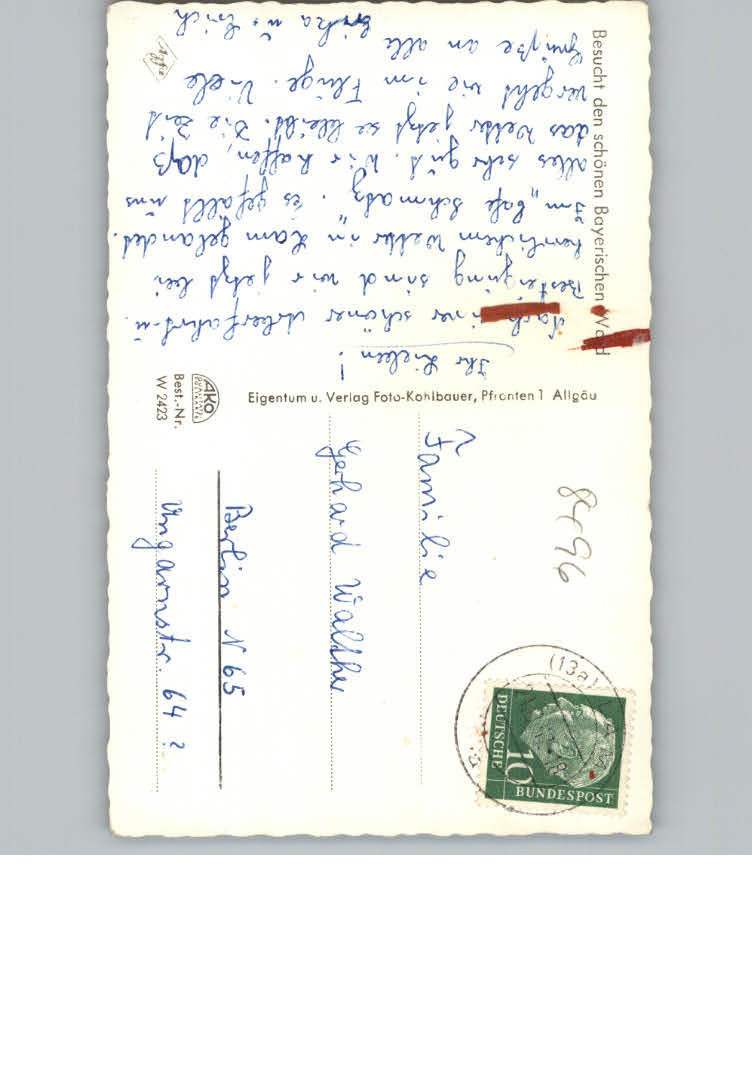 Besucht den schönen Bayerischen Wald
Ihr Lieben!
Nach einer schönen Autofahrt u.
sind wir jetzt bei
herrlichem Wetter in Lam gelandet.
Im „Cafe Schmatz". Es gefällt uns
alles sehr gut. Wir hoffen, daß
das Wetter jetzt so bleibt. Die Zeit
vergeht wie im Fluge. Viele
Grüße an alle
Erika u. Erich
Agfa
Eigentum u. Verlag Foto-Kohlbauer, Pfronten 1 Allgäu
AKO
Best.-Nr.
W 2423
8496
(13a) LAM
DEUTSCHE
BUNDESPOST
10
Familie
Gerhard Walther
Berlin N 65
Ungarnstr. 64 ?